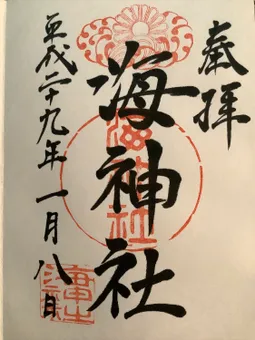 奉拝
海神社
平成二十九年一月八日
海神社